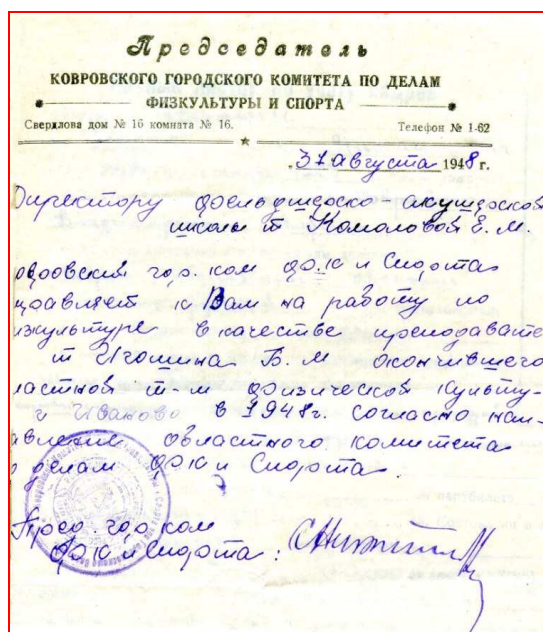 Председатель
КОВРОВСКОГО ГОРОДСКОГО КОМИТЕТА ПО ДЕЛАМ
ФИЗКУЛЬТУРЫ И СПОРТА
Свердлова дом № 16 комната № 16. Телефон № 1-62
„31 августа 1948 г.
Директору фельдшерско-акушерской
школы т Комоловой Е. М.
ровский гор. ком ф.к и Спорта
правляет к Вам на работу по
изкультуре в качестве преподавате
т Игошина Б. М окончившего
ластной т-м физической культу-
г Иваново в 1948г. согласно нап-
авления областного комитета
делам ф.к и Спорта.
Пред. гор. ком
ф.к и Спорта: